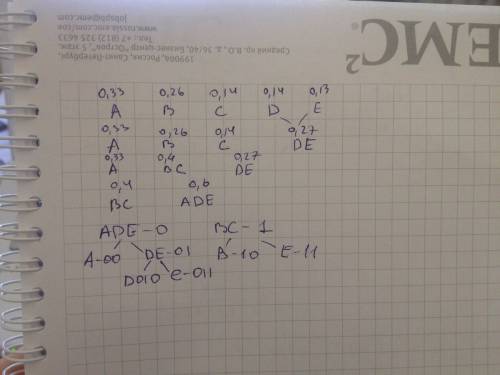 jobspb@emc.com
www.russia.emc.com/coe
Тел.: +7 (812) 325 4633
Средний пр. В.О., д. 36/40, Бизнес-центр "Остров", 5 этаж,
199004, Россия, Санкт-Петербург,
EMC²
0,33 0,26 0,14 0,14 0,13
A B C D E
0,33 0,26 0,14 0,27
A B C DE
0,33 0,4 0,27
A BC DE
0,4 0,6
BC ADE
ADE-0 BC-1
A-00 DE-01 B-10 E-11
D010 C-011